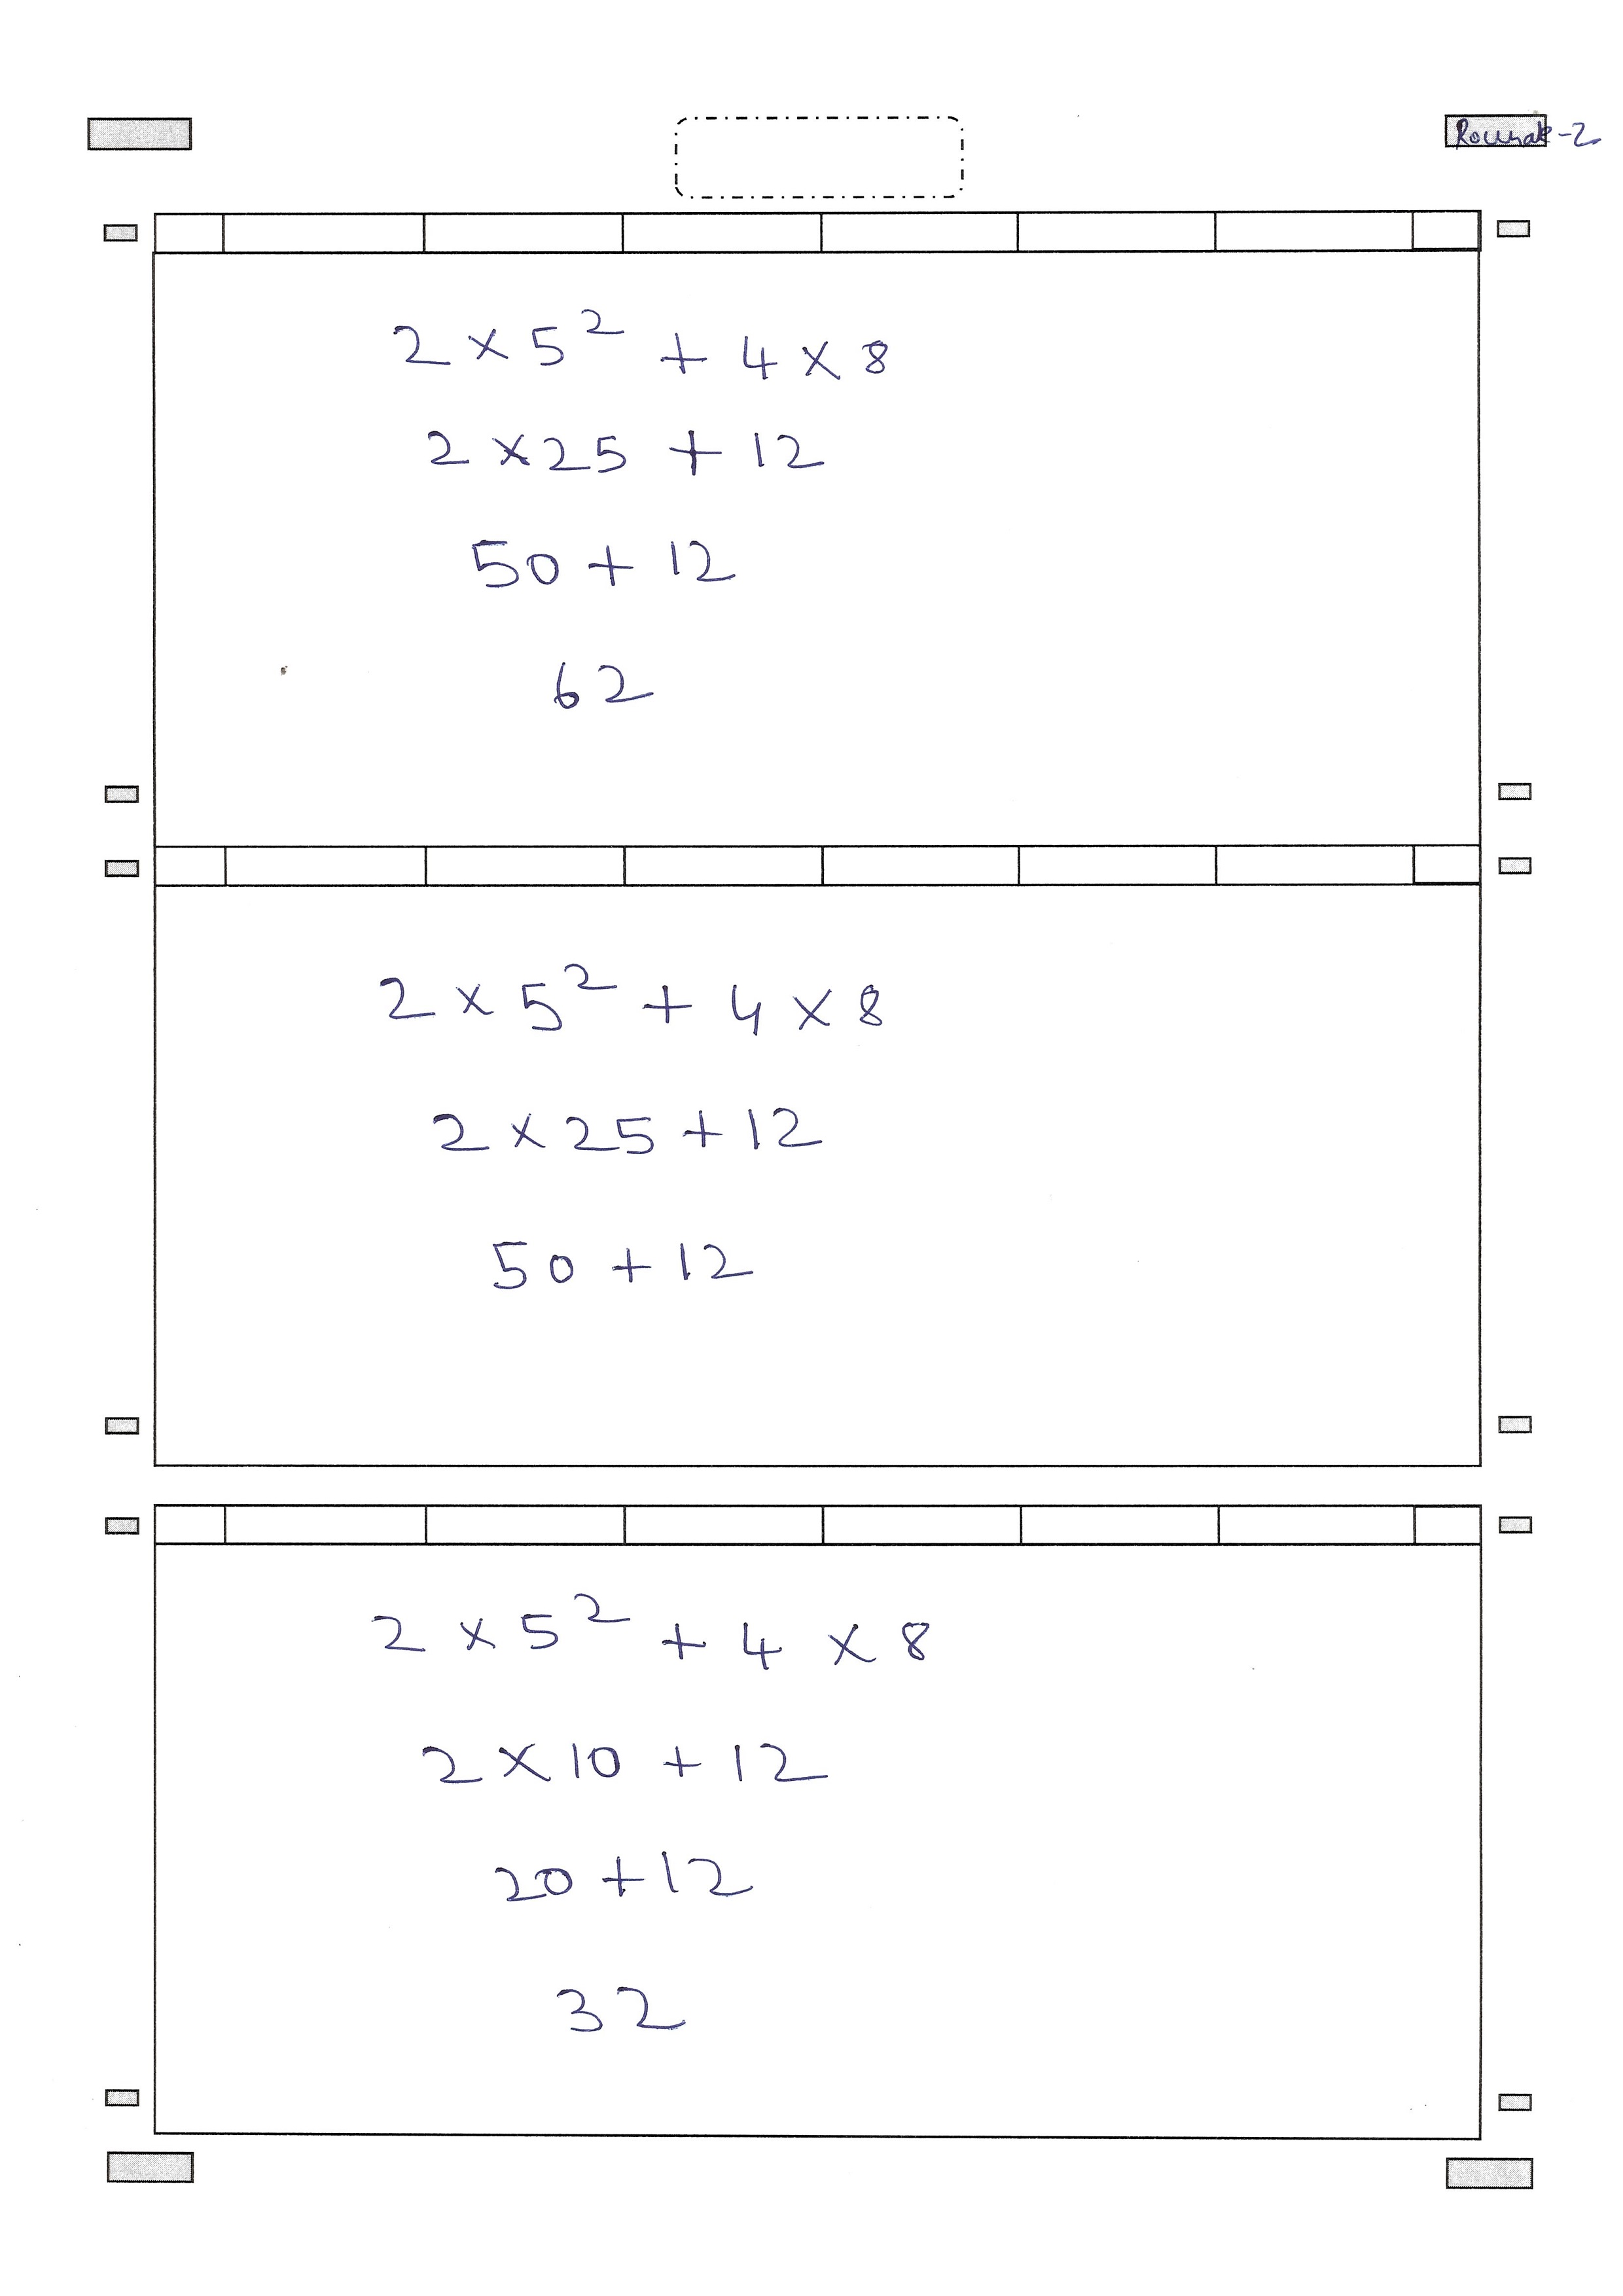 Rounak-2
2 × 5² + 4 × 8
2 × 25 + 12
50 + 12
62
2 × 5² + 4 × 8
2 × 25 + 12
50 + 12
2 × 5² + 4 × 8
2 × 10 + 12
20 + 12
32